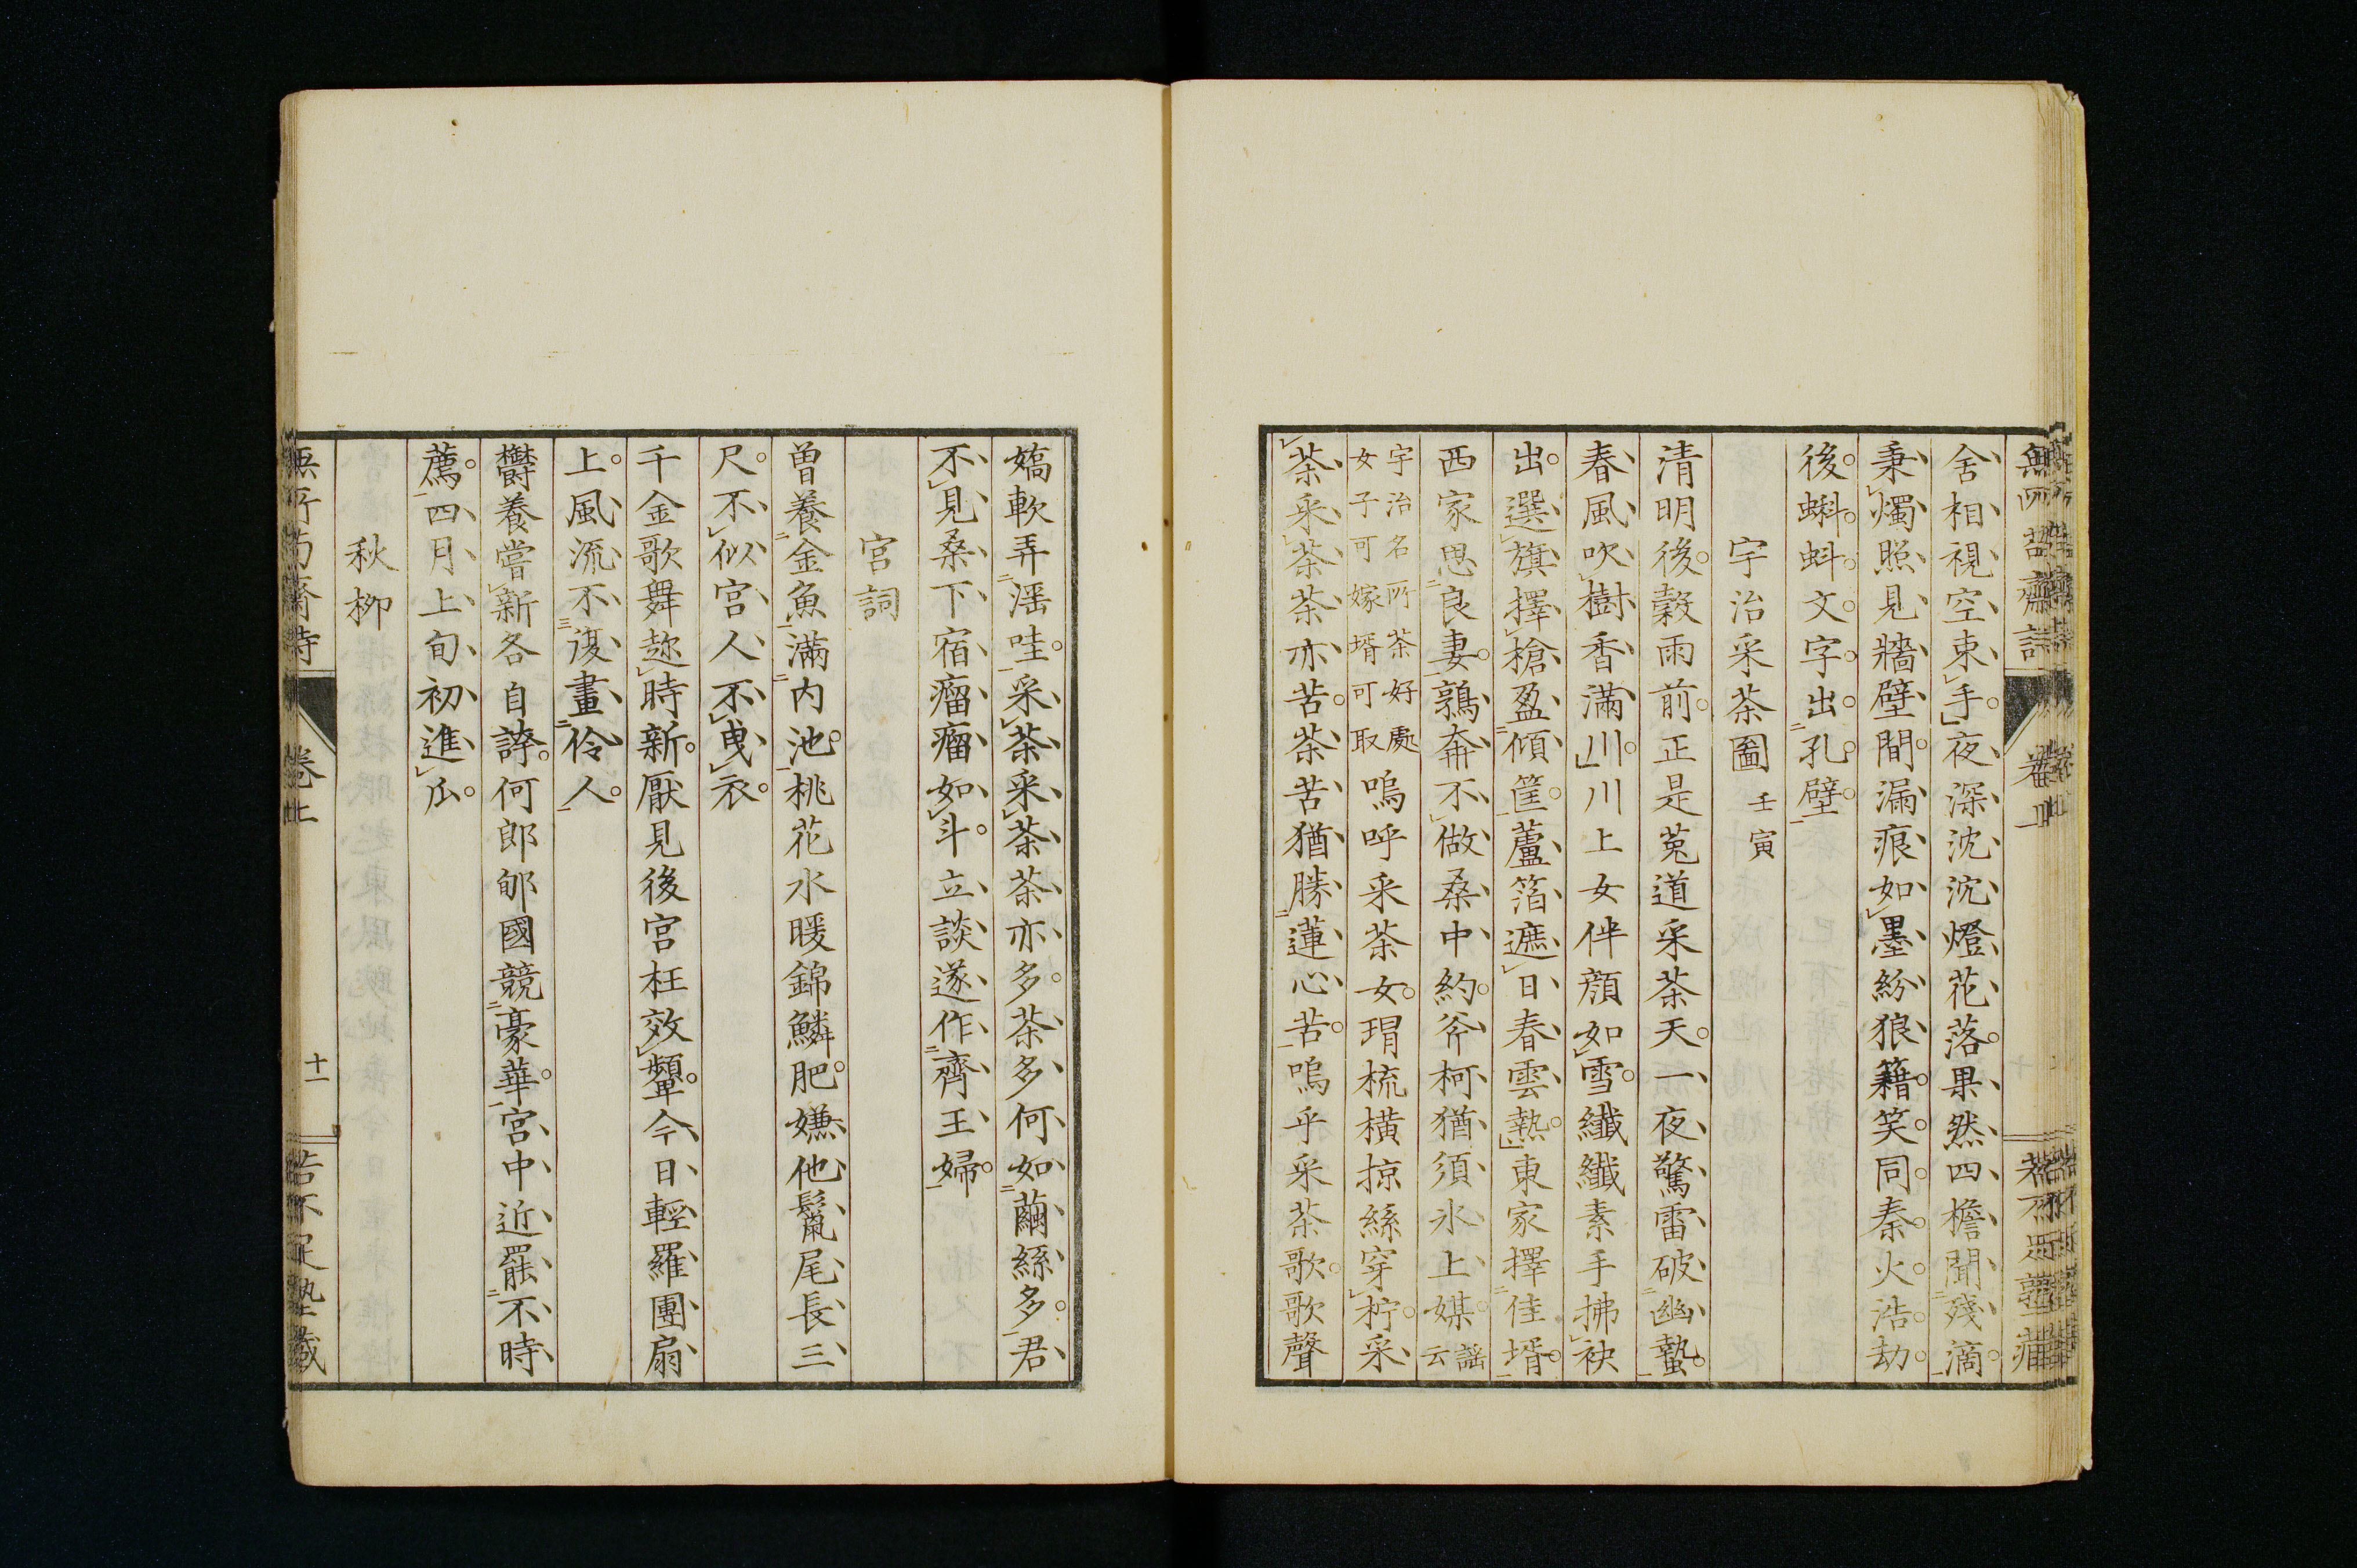 舍相視空束手夜深沈沈燈花落果然四檐聞殘滴
秉燭照見牆壁間漏痕如墨紛狼籍笑同秦火浩劫
後蝌蚪文字出孔壁
宇治采茶圖 壬寅
清明後穀雨前正是菟道采茶天一夜驚雷破幽蟄
春風吹樹香滿川川上女伴顔如雪纖纖素手拂袂
出選旗擇槍盈傾筐蘆箔遮日春雲熱東家擇佳壻
西家思良妻鶉奔不做桑中約斧柯猶須氷上媒謡云
宇治名所茶好處女子可嫁壻可取嗚呼采茶女玥梳橫掠絲穿柠采
茶采茶茶亦苦茶苦猶勝蓮心苦嗚乎采茶歌歌聲
嬌軟弄滛哇采茶采茶茶亦多茶多何如繭絲多君
不見桑下宿瘤瘤如斗立談遂作齊王婦
宮詞
曽養金魚滿內池桃花水暖錦鱗肥嫌他鬣尾長三
尺不似宮人不曳衣
千金歌舞趂時新厭見後宮枉效顰今日輕羅團扇
上風流不復畫伶人
欝養嘗新各自誇何郎郇國競豪華宮中近罷不時
薦四月上旬初進瓜
秋柳
卷上
十一